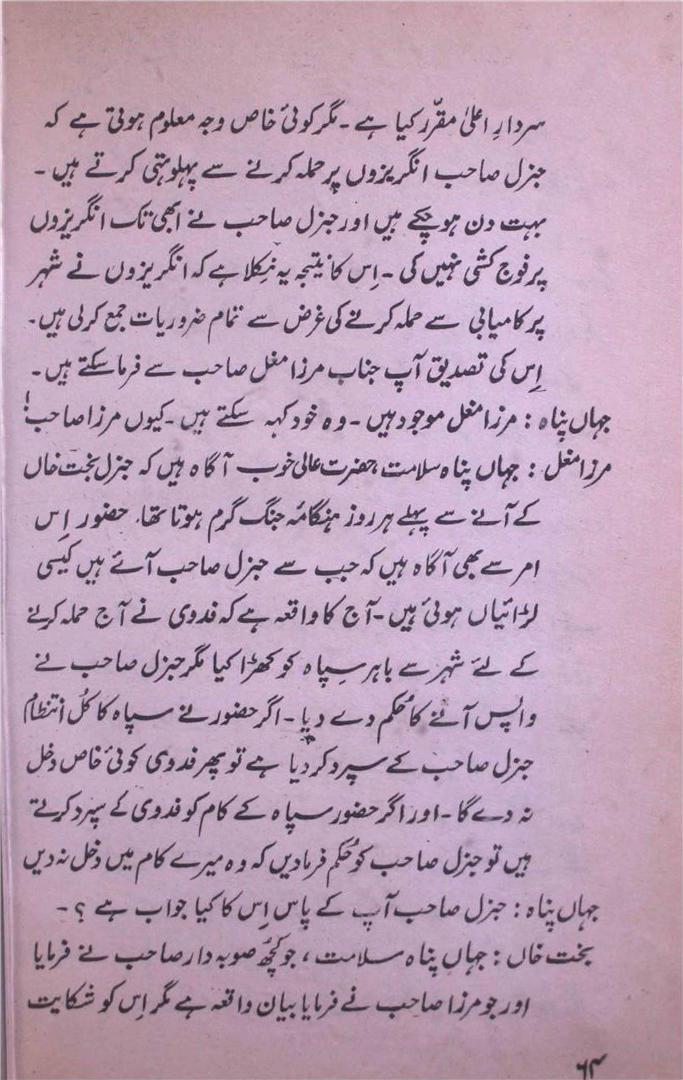 سردارِ اعلیٰ مقرّر کیا ہے ۔ مگر کوئی خاص وجہ معلوم ہوتی ہے کہ
جنرل صاحب انگریزوں پر حملہ کرنے سے پہلوتہی کرتے ہیں ۔
بہت دن ہو چکے ہیں اور جنرل صاحب نے ابھی تک انگریزوں
پر فوج کشی نہیں کی ۔ اِس کا نیتجہ یہ نِکلا ہے کہ انگریزوں نے شہر
پر کامیابی سے حملہ کرنے کی غرض سے تمام ضروریات جمع کرلی ہیں ۔
اِس کی تصدیق آپ جناب مرزا مغل صاحب سے فرما سکتے ہیں ۔
جہاں پناہ : مرزا مغل موجود ہیں ۔ وہ خود کہہ سکتے ہیں ۔ کیوں مرزا صاحب !
مرزا مغل : جہاں پناہ سلامت، حضرت عالی خوب آگاہ ہیں کہ جنرل بخت خاں
کے آنے سے پہلے ہر روز ہنگامہ جنگ گرم ہوتا تھا۔ حضور اِس
امر سے بھی آگاہ ہیں کہ جب سے جنرل صاحب آئے ہیں کیسی
لڑائیاں ہوئی ہیں ۔ آج کا واقعہ ہے کہ فدوی نے آج حملہ کرنے
کے لئے شہر سے باہر سپاہ کو کھڑا کیا مگر جنرل صاحب نے
واپس آنے کا حُکم دے دیا ۔ اگر حضور نے سپاہ کا کُل انتظام
جنرل صاحب کے سپرد کردیا ہے تو پھر فدوی کوئی خاص دخل
نہ دے گا ۔ اور اگر حضور سپاہ کے کام کو فدوی کے سپرد کرتے
ہیں تو جنرل صاحب کو حُکم فرمادیں کہ وہ میرے کام میں دخل نہ دیں
جہاں پناہ : جنرل صاحب آپ کے پاس اِس کا کیا جواب ہے ؟ ۔
بخت خاں : جہاں پناہ سلامت ، جو کچھ صوبہ دار صاحب نے فرمایا
اور جو مرزا صاحب نے فرمایا بیان واقعہ ہے مگر اِس کو شکایت
۶۴